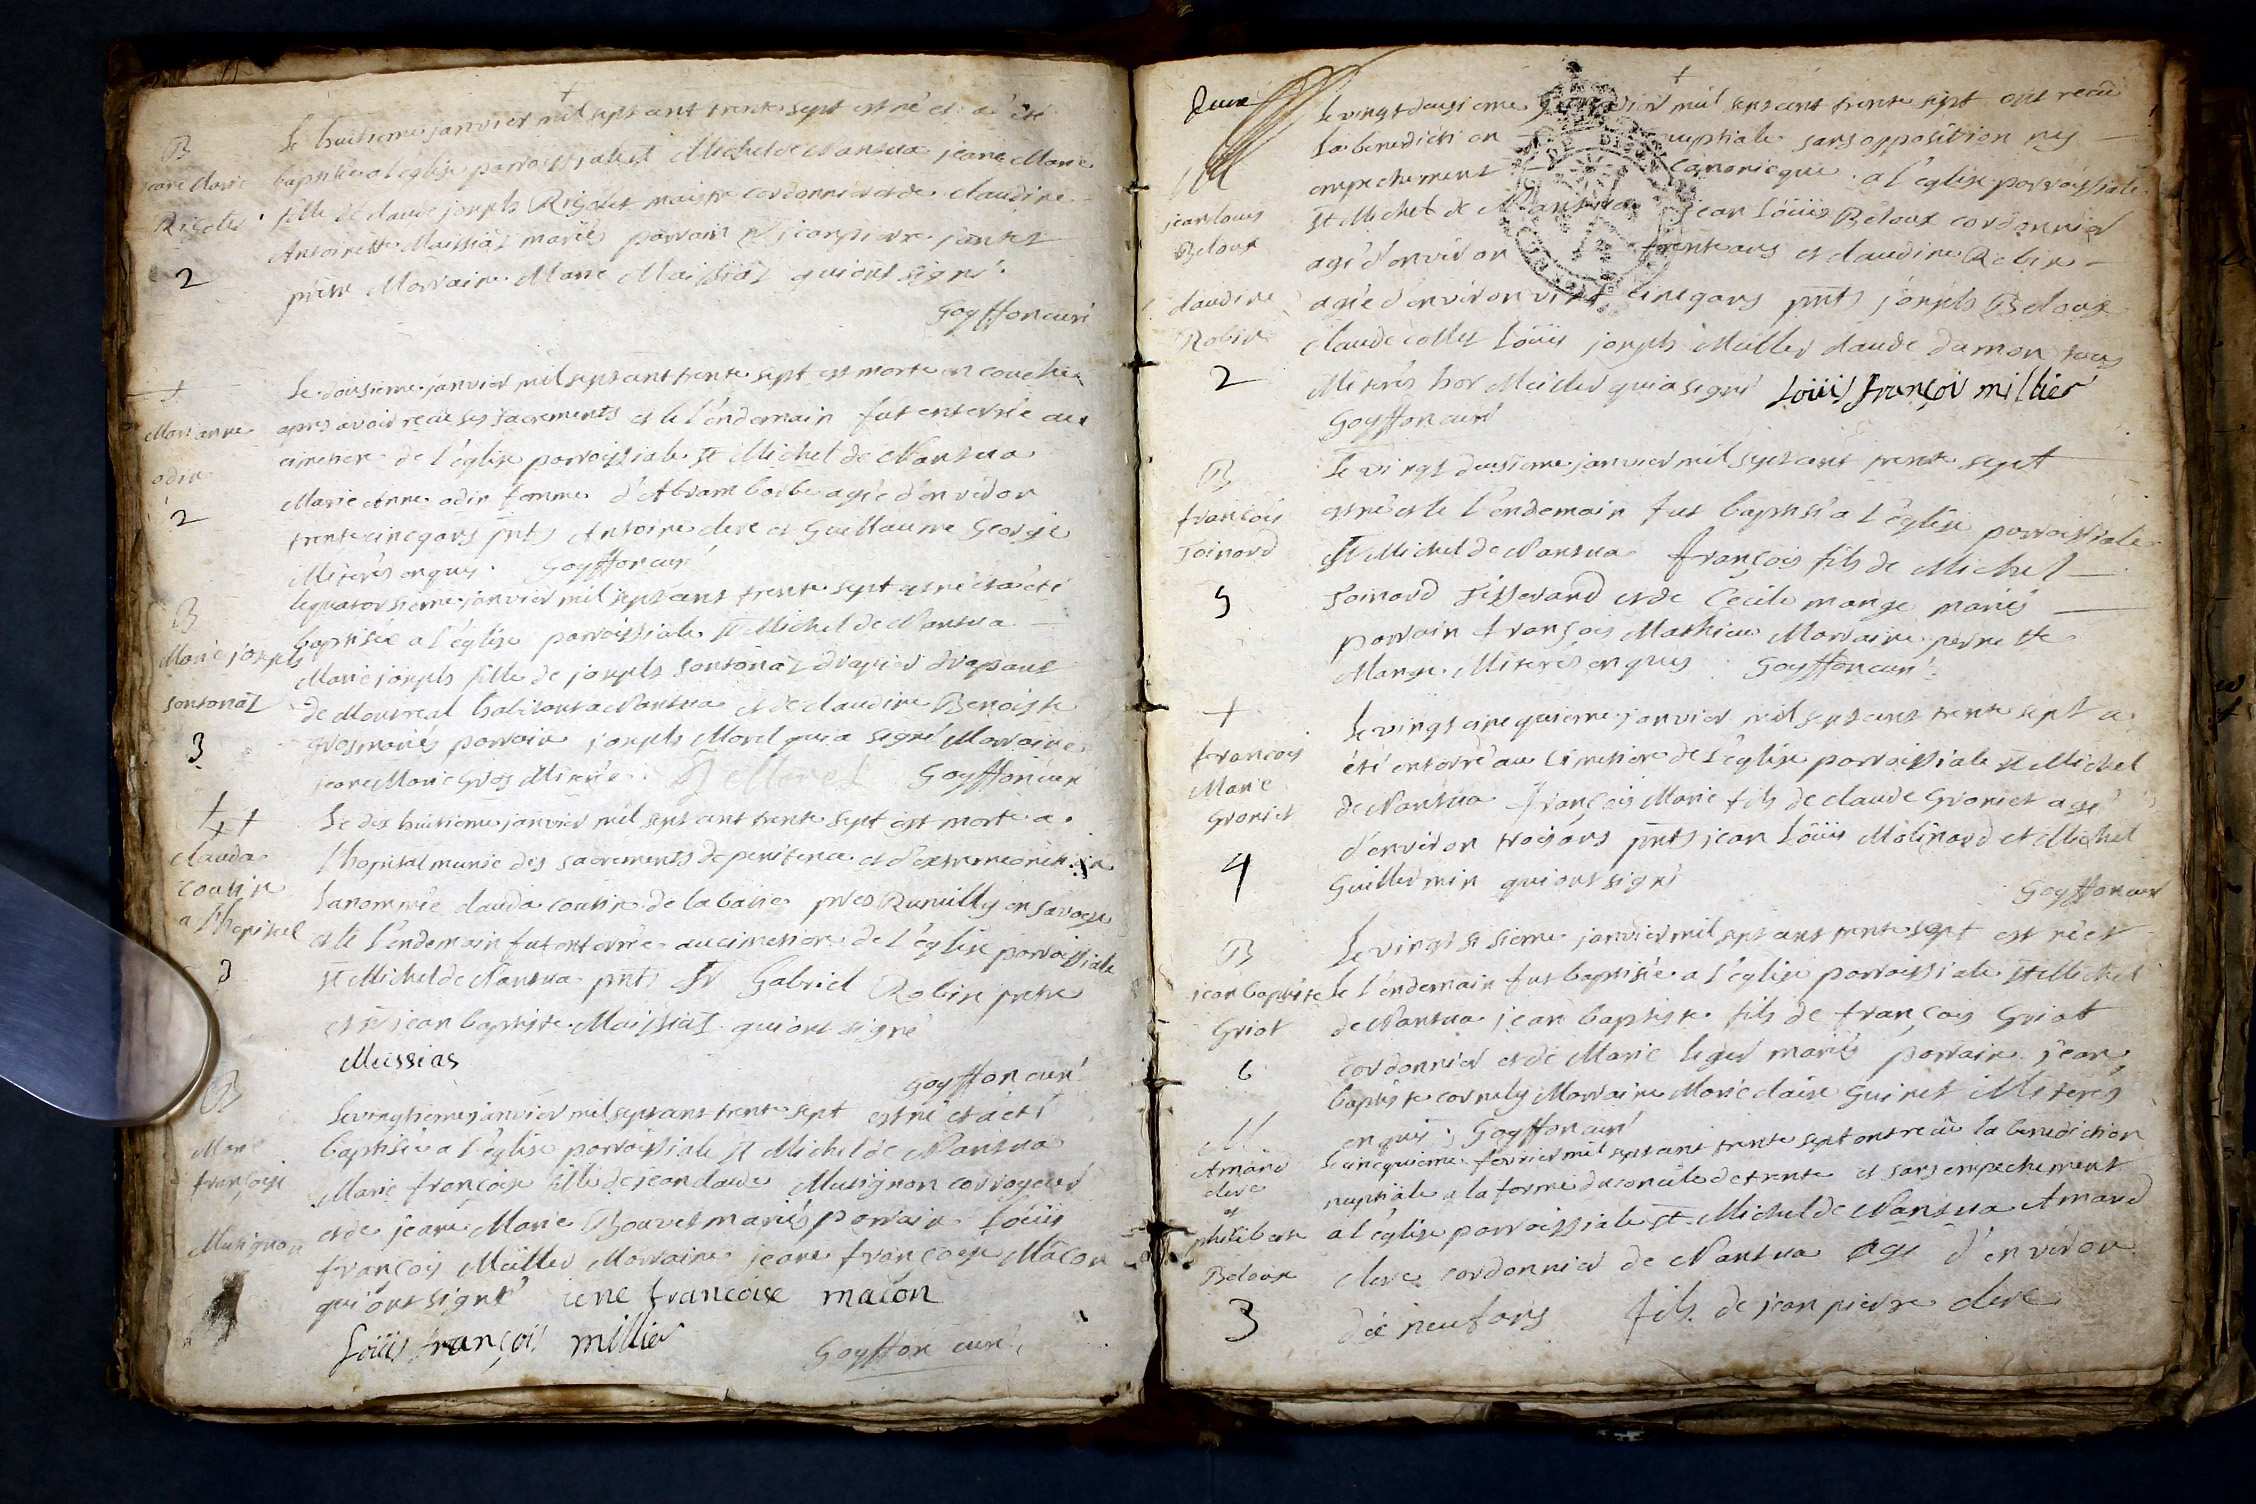 B
jeane Marie
Rigolet
2
Le huitieme janvier mil sept cent trente sept est né et a été
baptisée a l'eglise parroissiale st Michel de Nantua jeane Marie
fille de claude joseph Rigolet maistre cordonnier et de claudine
Antoinette Maissiat mariés parrain sr jean pierre
prètre Marraine Marie Maissiat qui ont signé.
Goyffon curé
+
Marianne
odin
2
Le douzieme janvier mil sept cent trente sept est morte en couche
apres avoir recue ses sacrements et le l'endemain fut enterrée au
cimetiere de l'église parroissiale st Michel de Nantua
Marie Anne odin femme d'Abram barbe agée d'environ
trente cinq ans pnts Antoine clere et Guillaume George
illiterés enquis. Goyffon curé
B
Marie joseph
sontonat
3
le quatorsieme janvier mil sept cent trente sept est né et a été
baptisée a l'église parroissiale st Michel de Nantua
Marie joseph fille de joseph sontonat drapier drapant
de Montreal habitant a Nantua et de claudine Benoiste
gros mariés parrain joseph Morel qui a signé Marraine
jeane Marie Gros illiterée. J Morel Goyffon curé
+ +
+
clauda
coutin
a l'hopital
3
Le dix huitieme janvier mil sept cent trente sept est morte a
l'hopital munie des sacrements de penitence et d'extremeonction
la nommée clauda coutin de labatie près Rumilly en savoye
et le l'endemain fut enterrée au cimetiere de l'église parroissiale
st Michel de Nantua pnts Sr Gabriel Robin pretre
et sr jean baptiste Maissiat qui ont signé
Meissias
Goyffon curé
B
Marie
françoise
Musignon
Le vingtieme janvier mil sept cent trente sept est né et a été
baptisée a l'église parroissiale st Michel de Nantua
Marie françoise fille de jean claude Musignon corroyeur
et de jeane Marie Bouvet mariés parrain Loüis
françois Müllier Marraine jeane françoise Mâcon
qui ont signé iene francoise macon
Loüis françois millier
Goyffon curé
M
jean louis
Beloux
claudine
Robin
2
Le vingt deusieme janvier mil sept cent trente sept ont recu
la benediction nuptiale sans opposition ny
empechement canonicque a l'eglise parroissiale
st Michel de Nantua jean Loüis Beloux cordonnier
agé d'environ trente ans et claudine Robin
agée d'environ vint cinq ans pnts joseph Beloux
claude collet Loüis joseph Müllier claude damon tous
illiterés hor Meilier qui a signé Loüis françois millier
Goyffon curé
B
françois
Toinard
5
Le vingt deusieme janvier mil sept cent trente sept
est né et le l'endemain fut baptisé a l'église parroissiale
st Michel de Nantua françois fils de Michel
Toinard Tisserand et de Cecile mange mariés
parrain françois Mathieu Marraine pernette
Mange illiterés enquis Goyffon curé
+
francois
Marie
Groniet
4
Le vingt cinquieme janvier mil sept cent trente sept a
été enterré au cimetiere de l'église parroissiale st Michel
de Nantua françois Marie fils de claude Groniet agé
d'environ trois ans pnts jean Loüis Molinard et Michel
Guillermin qui ont signé
Goyffon curé
B
jean baptiste
Griot
6
Le vingt sisieme janvier mil sept cent trente sept est né et
le l'endemain fut baptisée a l'église parroissiale st Michel
de Nantua jean baptiste fils de françois Griot
cordonnier et de Marie leger mariés parrain jean
baptiste cornely Marraine Marie claire Guinet illiterés
enquis. Goyffon curé
M
Amand
clere
et
philiberte
Beloux
3
Le cincquieme fevrier mil sept cent trente sept ont recu la benediction
nuptiale a la forme du concile de trente et sans empechement
a l'église parroissiale st Michel de Nantua Amand
clere cordonnier de Nantua agé d'environ
dix neuf ans fils de jean pierre clere